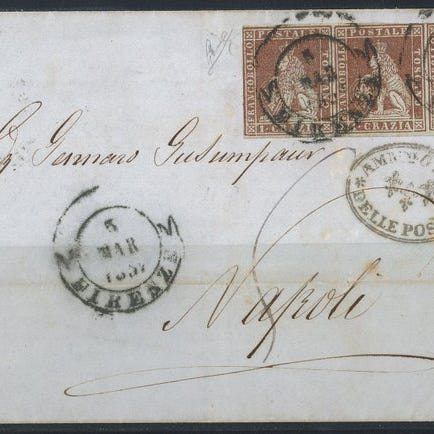 FRANCOBOLLO POSTALE TOSCANO 1 CRAZIA
FRANCOBOLLO POSTALE TOSCANO 1 CRAZIA
3 MAR FIRENZE
Gennaro
AMM DELLE POS
3 MAR 1857 FIRENZE
Napoli